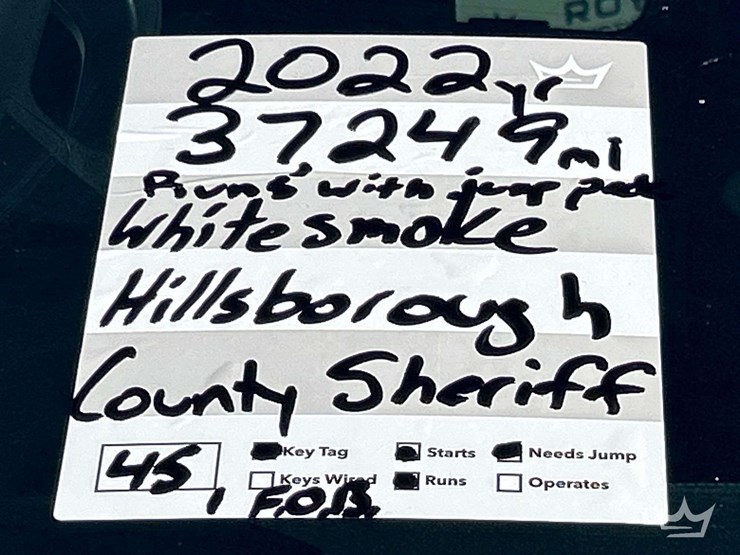 ROY
2022 yr
37,249 mi
Runs with jump pack
White smoke
Hillsborough
County Sheriff
45 Key Tag Starts Needs Jump
Keys Wired Runs Operates
1 F.O.B.